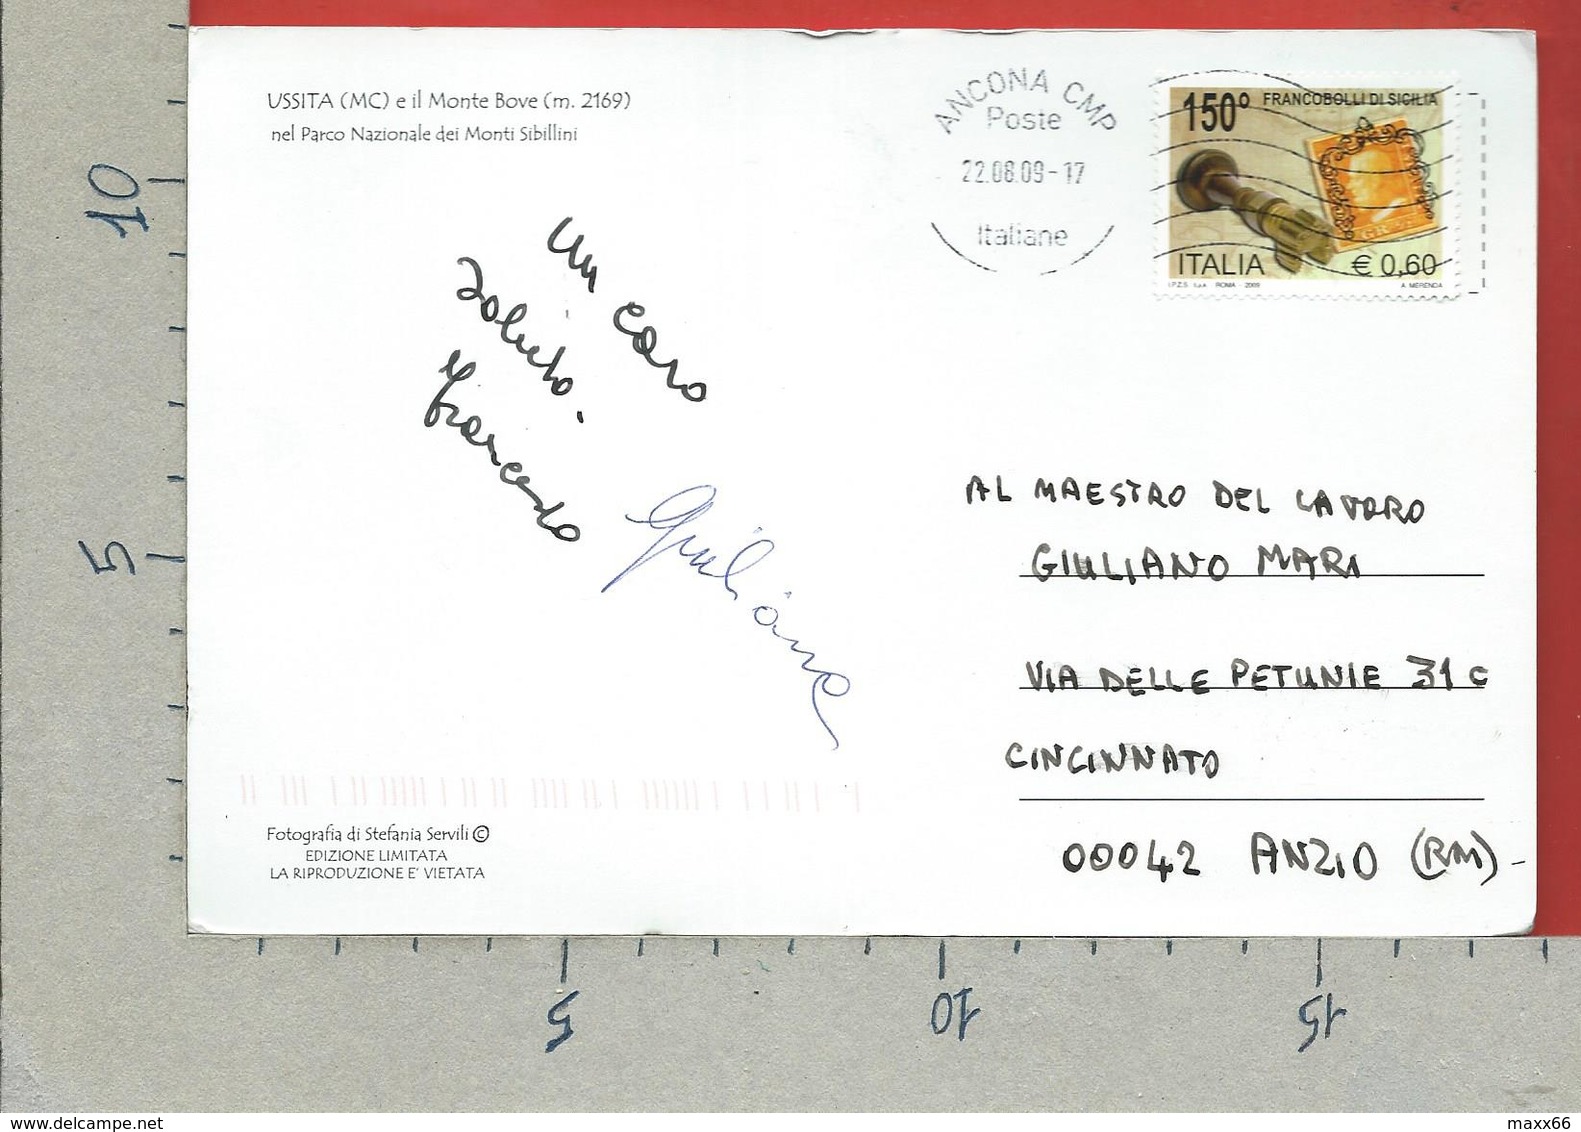 USSITA (MC) e il Monte Bove (m. 2169)
nel Parco Nazionale dei Monti Sibillini
ANCONA CMP
Poste
22.08.09-17
Italiane
150° FRANCOBOLLI DI SICILIA
ITALIA € 0,60
I.P.Z.S. S.p.A. ROMA - 2009 A. MERENDA
Un caro
saluto.
Giancarlo
Giuliana
AL MAESTRO DEL LAVORO
GIULIANO MARI
VIA DELLE PETUNIE 31 C
CINCINNATO
00042 ANZIO (RM)-
Fotografia di Stefania Servili ©
EDIZIONE LIMITATA
LA RIPRODUZIONE E' VIETATA
10
5
5
10
15
www.delcampe.net
maxx66